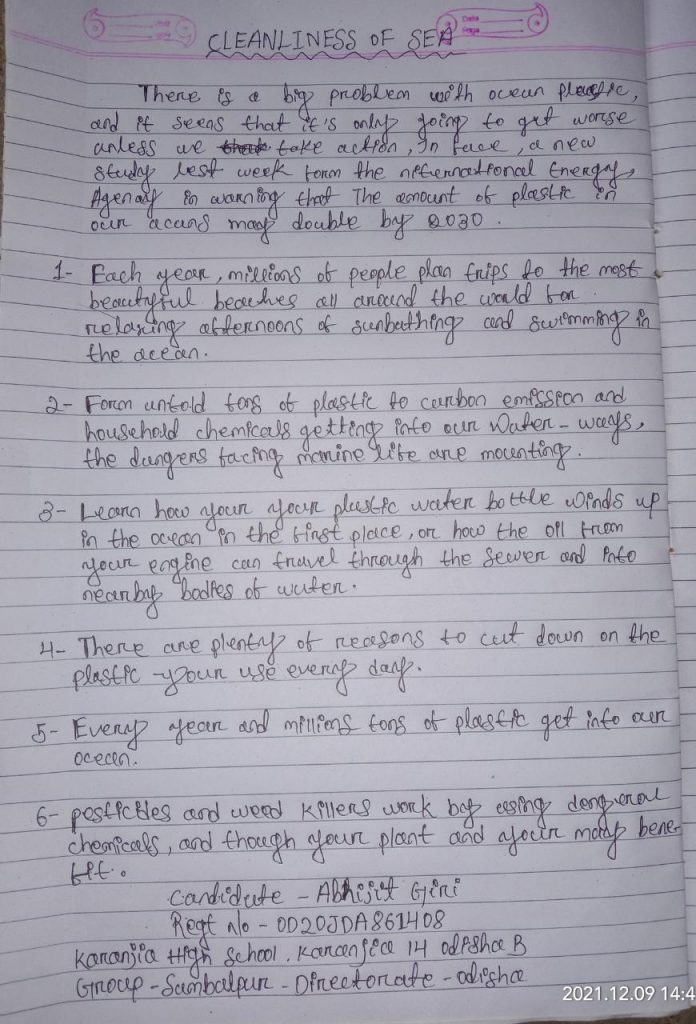 CLEANLINESS OF SEA
There is a big problem with ocean plastic,
and it seens that it's only going to get worse
unless we take action, In face, a new
study last week form the nifternational Energy,
Agenay in warning that The amount of plastic in
our acans may double by 2030.
1- Each year, millions of people plan trips to the most
beautyful beaches all around the world for
relaxing afternoons of sunbathing and swimming in
the ocean.
2- Form untold tons of plastic to carbon emission and
household chemicals getting into our Water-ways,
the dangers facing marine life are mounting.
3- Learn how your your plastic water bottle winds up
in the ocean in the first place, or how the oil from
your engine can travel through the sewer and into
nearby bodies of water.
4- There are plenty of reasons to cut down on the
plastic your use every day.
5- Every year and millions tons of plastic get into our
ocean.
6- posticides and weed killers work by using dangerous
chemicals, and though your plant and your may bene-
fit.
Candidate - Abhijit Giri
Regt No - OD20JDA861408
Karanjia High School. Karanjia 14 odisha B
Group - Sambalpur - Directorate - odisha
2021.12.09 14:4